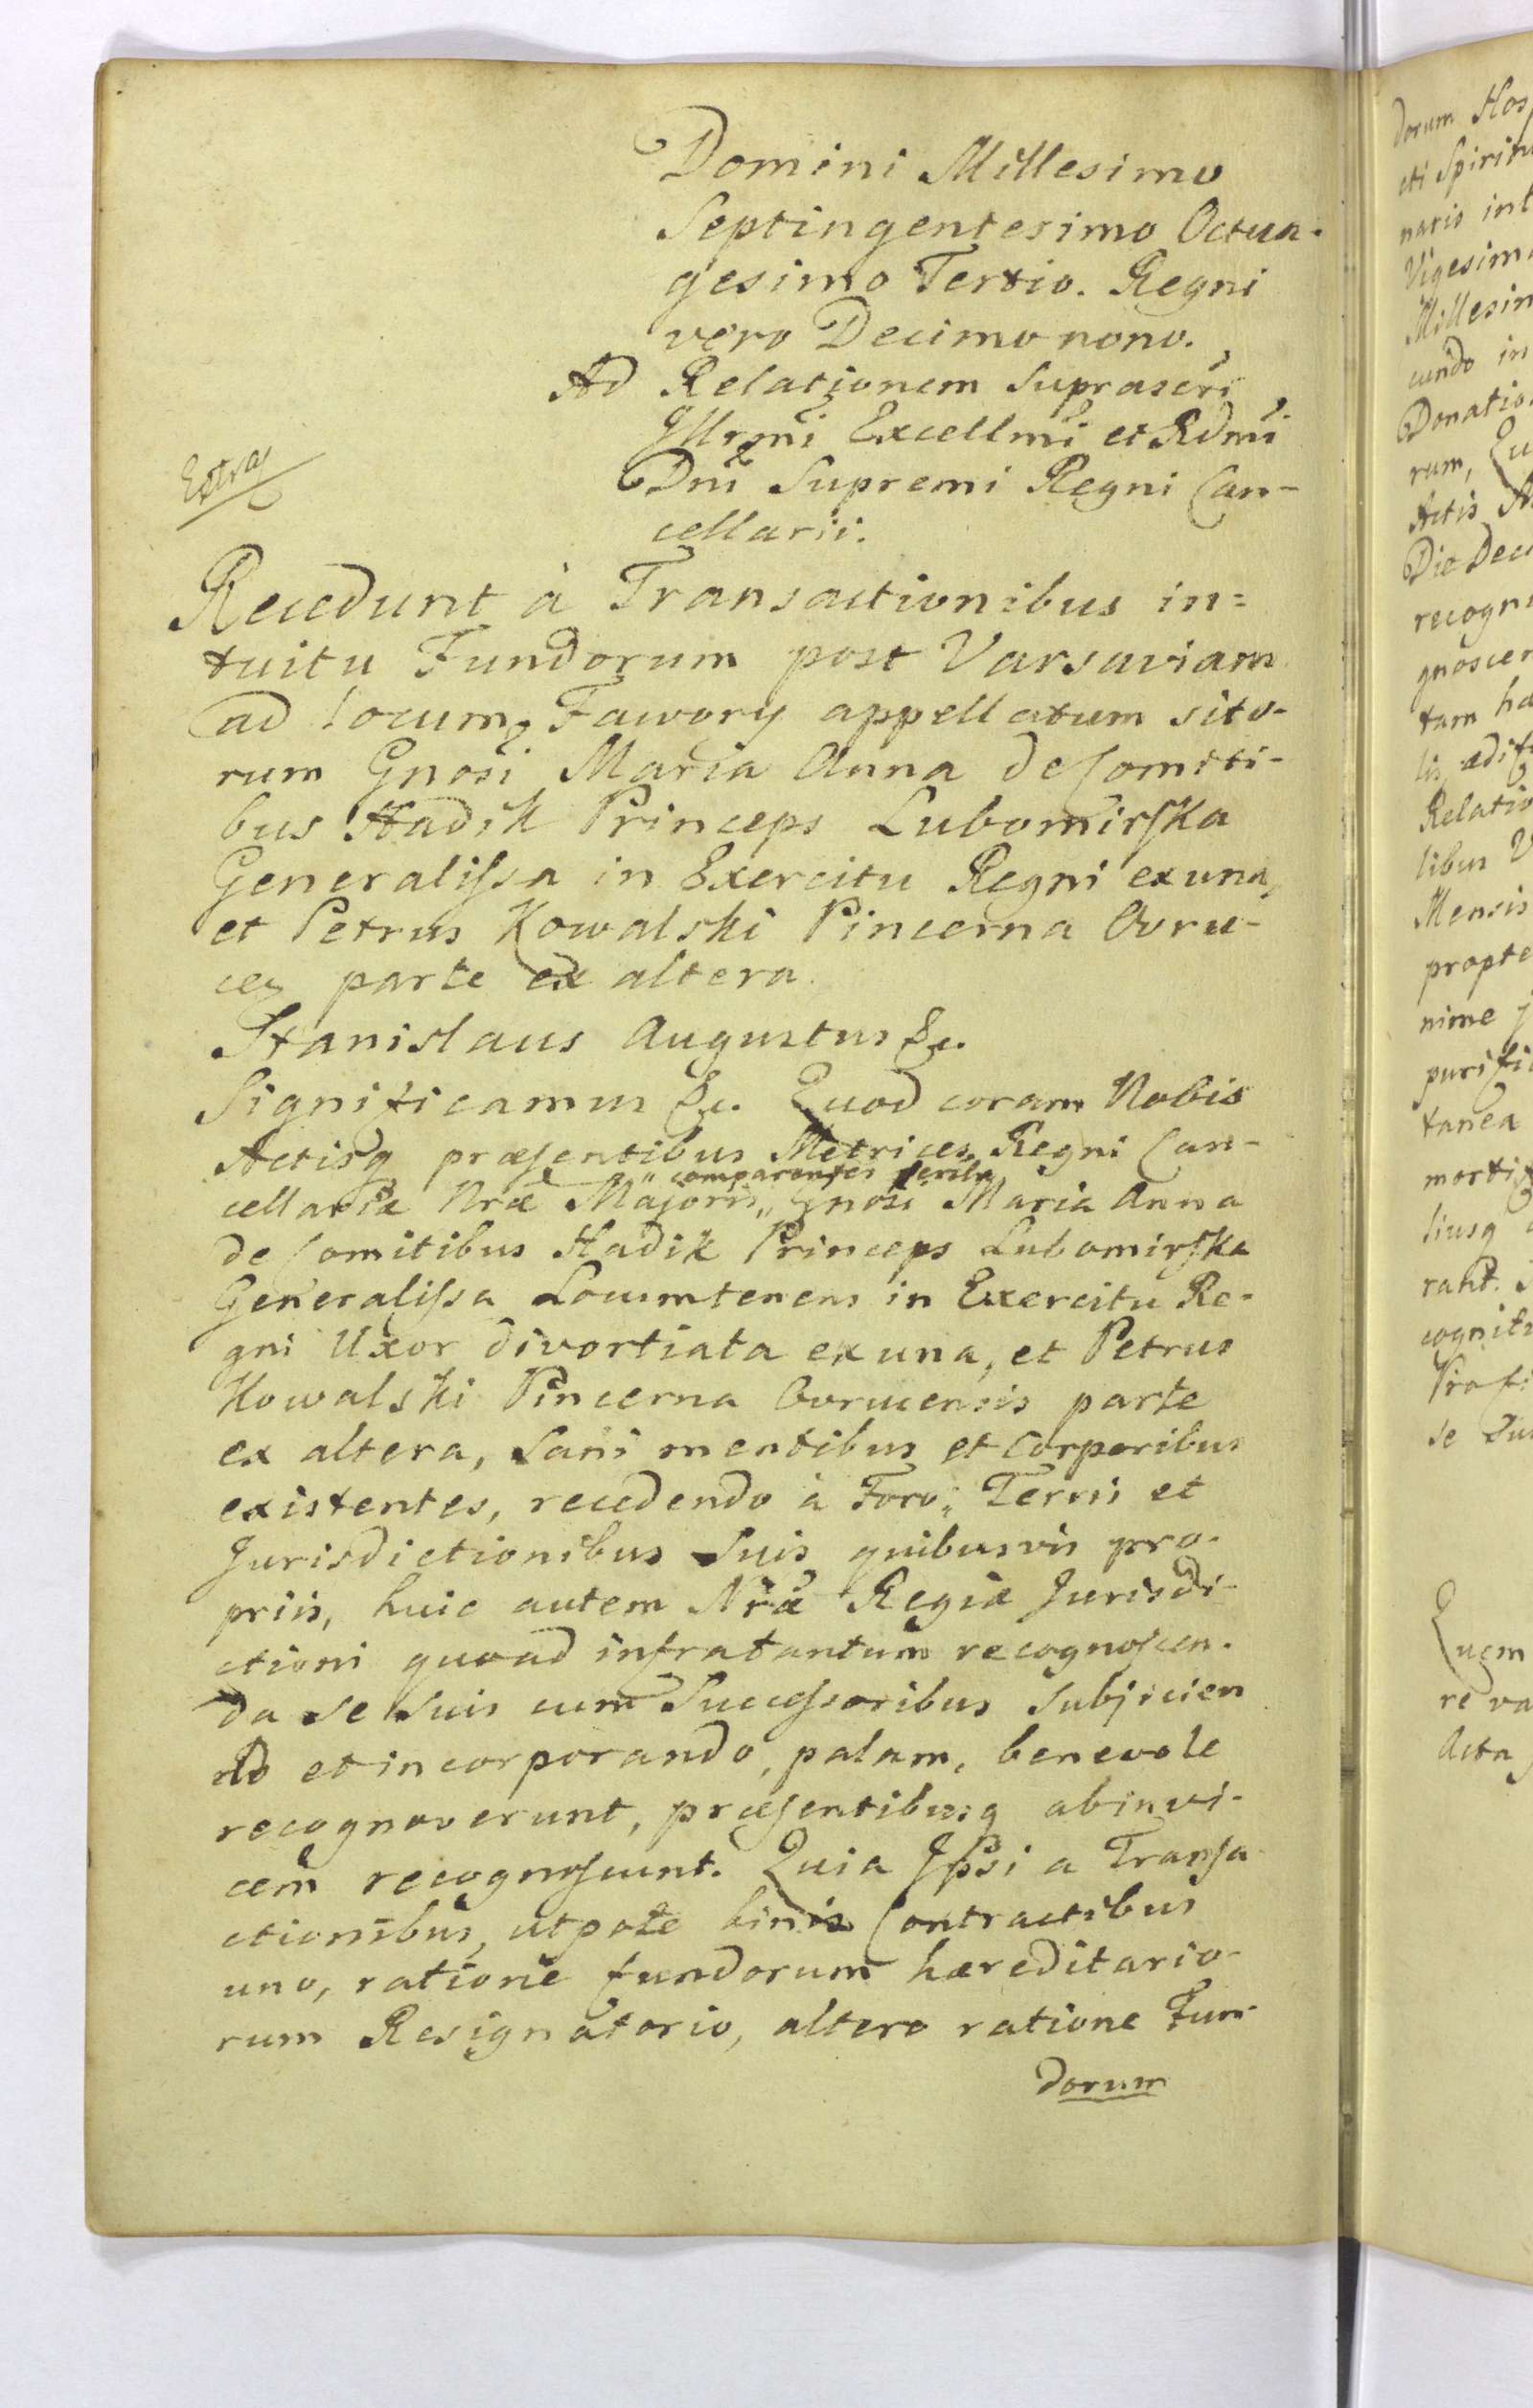 Domini Millesimo
Septingentesimo Octua-
gesimo Tertio. Regni
vero Decimo nono.
Ad Relationem Suprascri
Illrmi Excellmi et Rdmi
Dni Supremi Regni Can-
cellarii.
Extra
Recedunt à Transactionibus in=
tuitu Fundorum post Varsaviam
ad locum Fawory appellatum sito-
rum Gnosi Maria Anna de Comiti-
bus Hadik Princeps Lubomirska
Generalissa in Exercitu Regni ex una,
et Petrus Kowalski Pincerna Ovru-
cen parte ex altera.
Stanislaus Augustus &c.
Significamus &c. Quod coram Nobis
Actisq præsentibus Metrices Regni Can-
cellariæ Nræ Majoris „ comparentes persltr „ Gnosi Maria Anna
de Comitibus Hadik Princeps Lubomirska
Generalissa Locumtenens in Exercitu Re-
gni Uxor divortiata ex una, et Petrus
Kowalski Pincerna Ovrucensis parte
ex altera, Sani mentibus et Corporibus
existentes, recedendo à Foro, Terris et
Jurisdictionibus Suis quibusvis pro-
priis, huic autem Nræ Regiæ Jurisdi-
ctioni quoad infratantum recognoscen-
da se suis cum Successoribus Subjicien
do et incorporando, palam, benevole
recognoverunt, præsentibusq abinvi-
cem recognoscunt. Quia Ipsi a Transa
ctionibus, utpote binis Contractibus
uno, ratione fundorum hæreditario-
rum Resignatorio, altero ratione Fun-
dorum
dorum Hos
cti Spiritu
naris int
Vigesim
Millesim
cundo in
Donatio
rum, Qu
Actis
Die Deci
recogn
gnoscen
tam ha
lis ædif
Relatio
libus V
Mensis
propte
nime
purifi
tanea
morti
liusq
rant.
cognit
Profi
se
Quem
re va
Acta